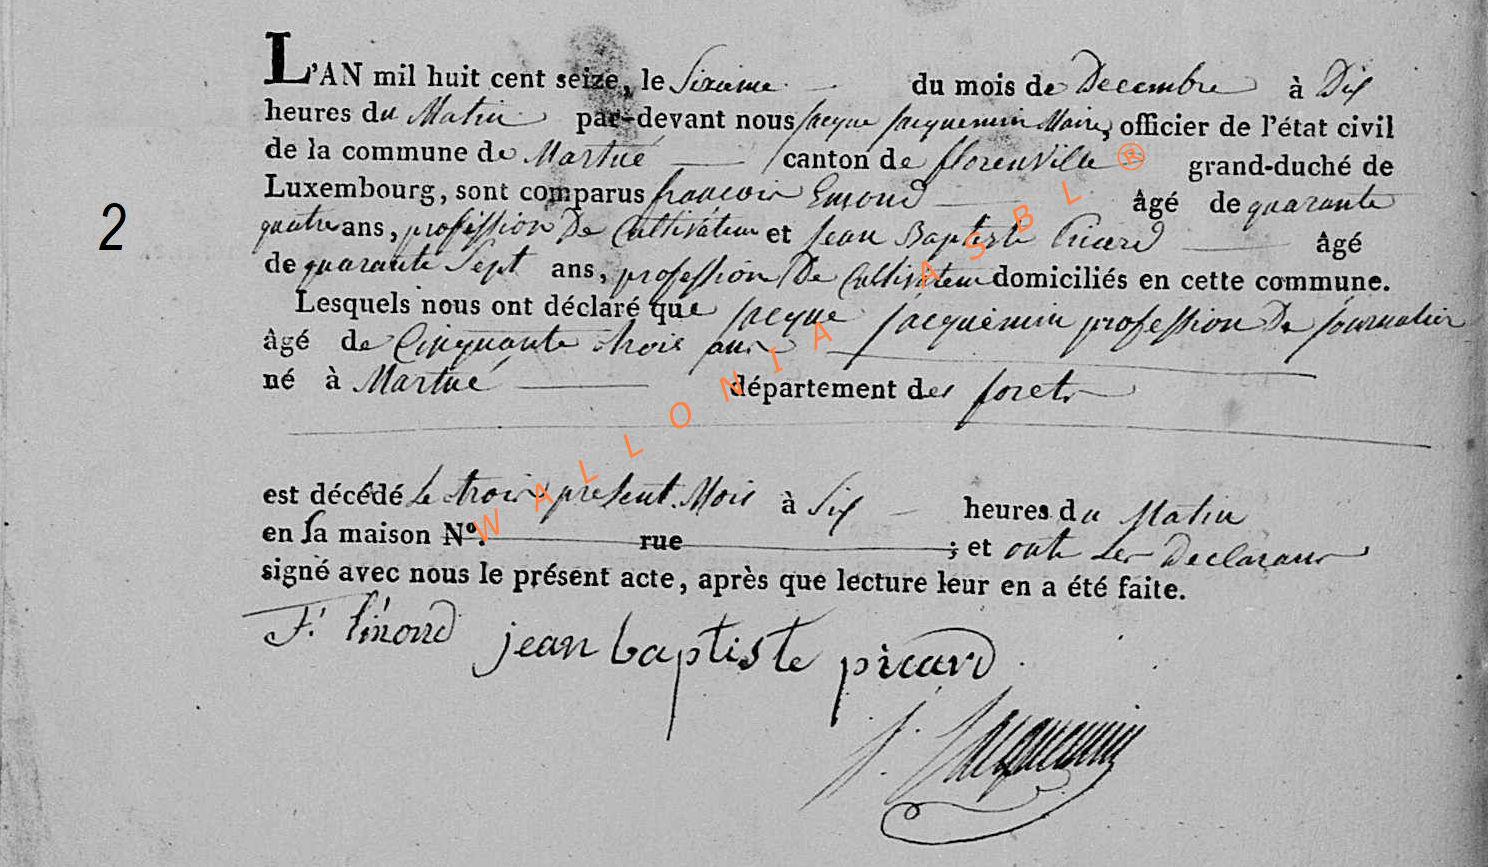 L'AN mil huit cent seize, le Sixieme du mois de Decembre à Dix
heures du Matin par-devant nous Jacque Jacquemin Maire, officier de l'état civil
de la commune de Martué canton de florenville grand-duché de
Luxembourg, sont comparus françois Emond âgé de quarante
2
quatre ans, profession De Cultivateur et Jean Baptiste Picard âgé
de quarante Sept ans, profession De Cultivateur domiciliés en cette commune.
Lesquels nous ont déclaré que Jacque Jacquemin profession De Journalier
âgé de Cinquante trois ans
né à Martué département des forets
est décédé Le trois present Mois à Six heures du Matin
en sa maison N°. rue ; et ont Les Declarans
signé avec nous le présent acte, après que lecture leur en a été faite.
F. Emond jean baptiste picard
J. Jacquemin
WALLONIA ASBL ®